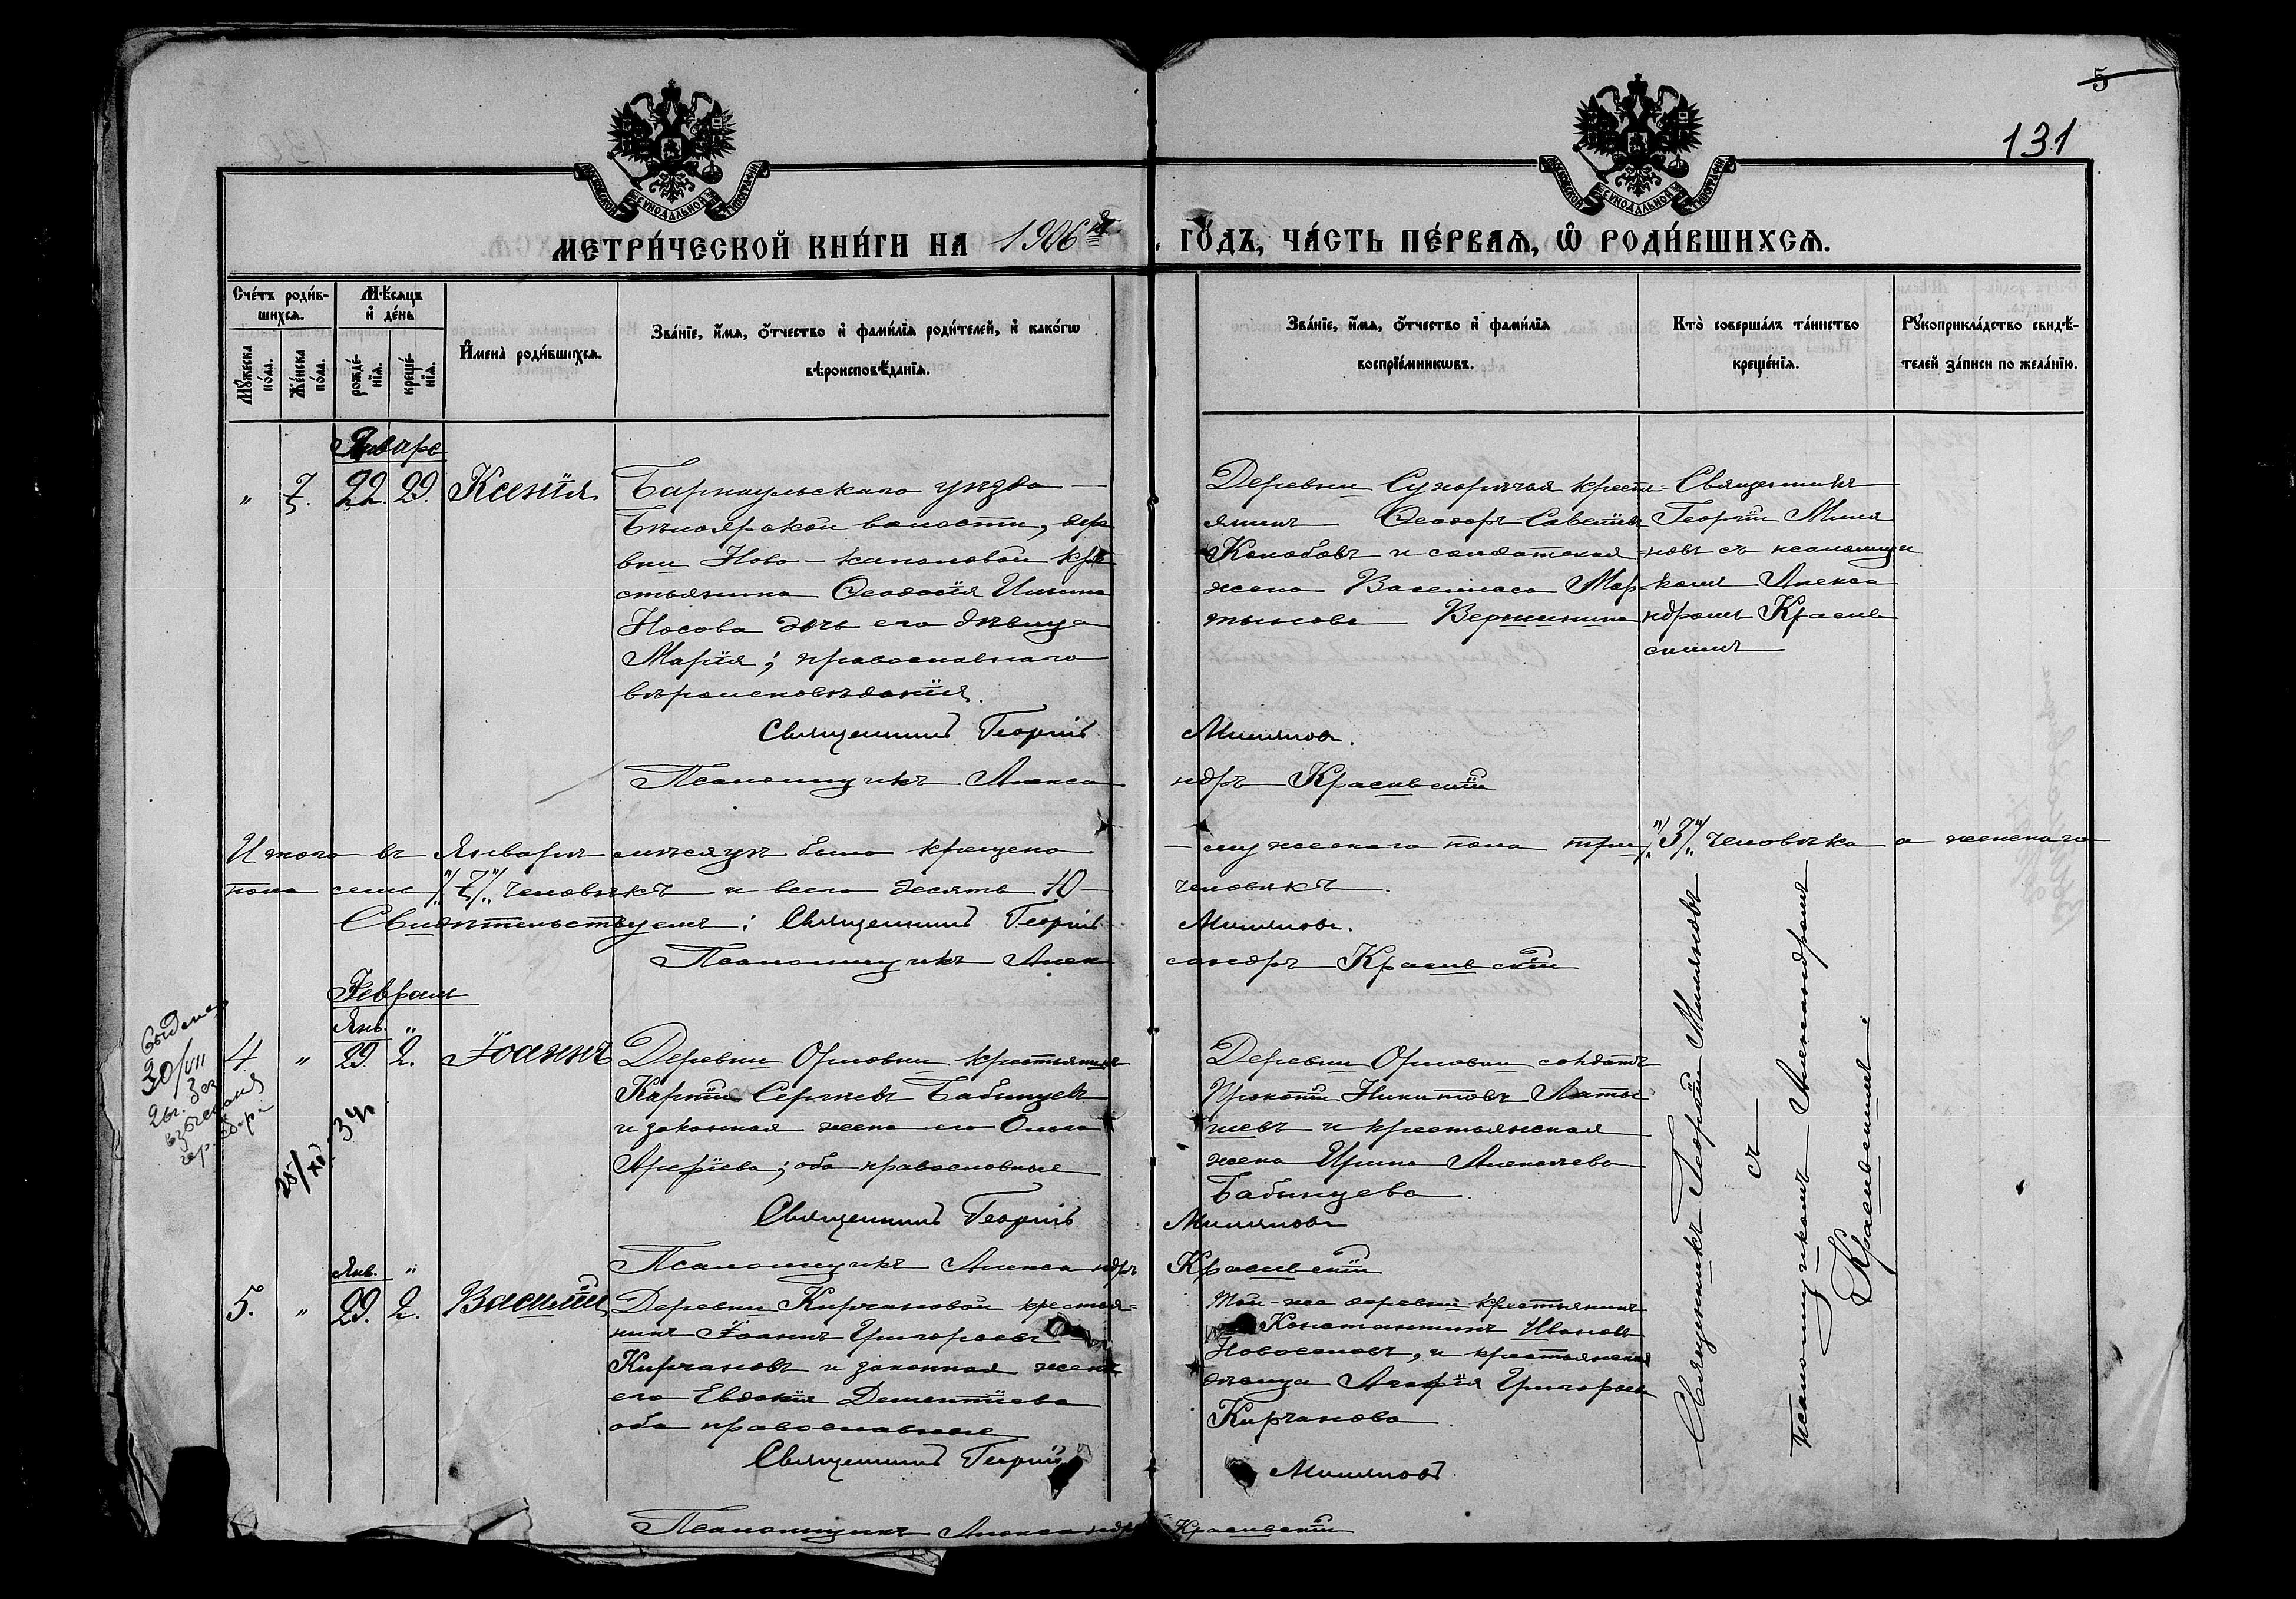 5
131
МОСКОВСКОЙ СѴНОДАЛЬНОЙ ТИПОГРАФІИ
МОСКОВСКОЙ СѴНОДАЛЬНОЙ ТИПОГРАФІИ
МЕТРИ́ЧЕСКОЙ КНИ́ГИ НА 1906 й ГО́ДЪ, ЧА́СТЬ ПЕ́РВАѦ, Ѡ РОДИ́ВШИХСѦ.
Сче́тъ роди́в-
шихсѧ.
Мꙋ́жеска
по́ла.
Же́нска
по́ла.
Мѣ́сѧцъ
и҆ де́нь
рожде́-
нїѧ.
креще́-
нїѧ.
И҆мена̀ роди́вшихсѧ.
Зва́нїе, и҆́мѧ, о҆́тчество и҆ фами́лїѧ роди́телей, и҆ како́гѡ
вѣроисповѣ́данїѧ.
Зва́нїе, и҆́мѧ, о҆́тчество и҆ фами́лїѧ
воспрїе́мникѡвъ.
Кто̀ соверша́лъ та́инство
креще́нїѧ.
Рꙋкоприкла́дство свидѣ́-
телей за́писи по жела́нїю.
Январь
" 7. 22. 29. Ксенія
Барнаульскаго уѣзда
Бѣлоярской волости, дер
вни Ново-
стьянина Ѳеодосія Ильина
Носова дочь его дѣвица
Марія; православнаго
вѣроисповѣданія.
Деревни крестя-
янинъ Ѳеодоръ Савельевъ
и солдатская
жена Васелиса Мар-
тынова Вершинина
Священникъ
Георгій Миля
новъ съ псаломщи
комъ Алекса
ндромъ Красив
скимъ
Священникъ Георгій Милямовъ.
Псаломщикъ Алекса ндръ Красивскій
Итого въ Январѣ мѣсяцѣ было крещено мужескаго пола три "/3/" человѣка а женскаго
пола семь "/7/" человѣкъ и всего десять 10 человѣкъ.
Свидѣтельствуемъ: Священникъ Георгій Милямовъ.
Псаломщикъ Алек сандръ Красивскій
Февраль
Янв. "
4 " 29. 2. Іоаннъ
Деревни Орловки крестьянинъ
Сергѣевъ Бабинцевъ
и законная жена его Ольга
Арефіева; оба православные
Деревни Орловки солдатъ
Прокопій Никитовъ
и крестьянская
жена Ирина Алексѣева
Бабинцева.
Священникъ Георгій Милямовъ
Псаломщикъ Александръ Красивскій
Янв. "
5. " 29. 2. Василій
Деревни Кирчановой крестья-
нинъ Іоаннъ Григорьевъ
Кирчановъ и законная жена
его Евдокія Дементіева
оба православные
Той-же деревни крестьянинъ
Константинъ Ивановъ
Новоселовъ, и крестьянская
дѣвица Агафія Григорьева
Кирчанова
Священникъ Георгій Милямовъ
съ
псаломщикомъ Александромъ
Красивскимъ.
Священникъ Георгій Милямовъ.
Псаломщикъ Александръ Красивскій